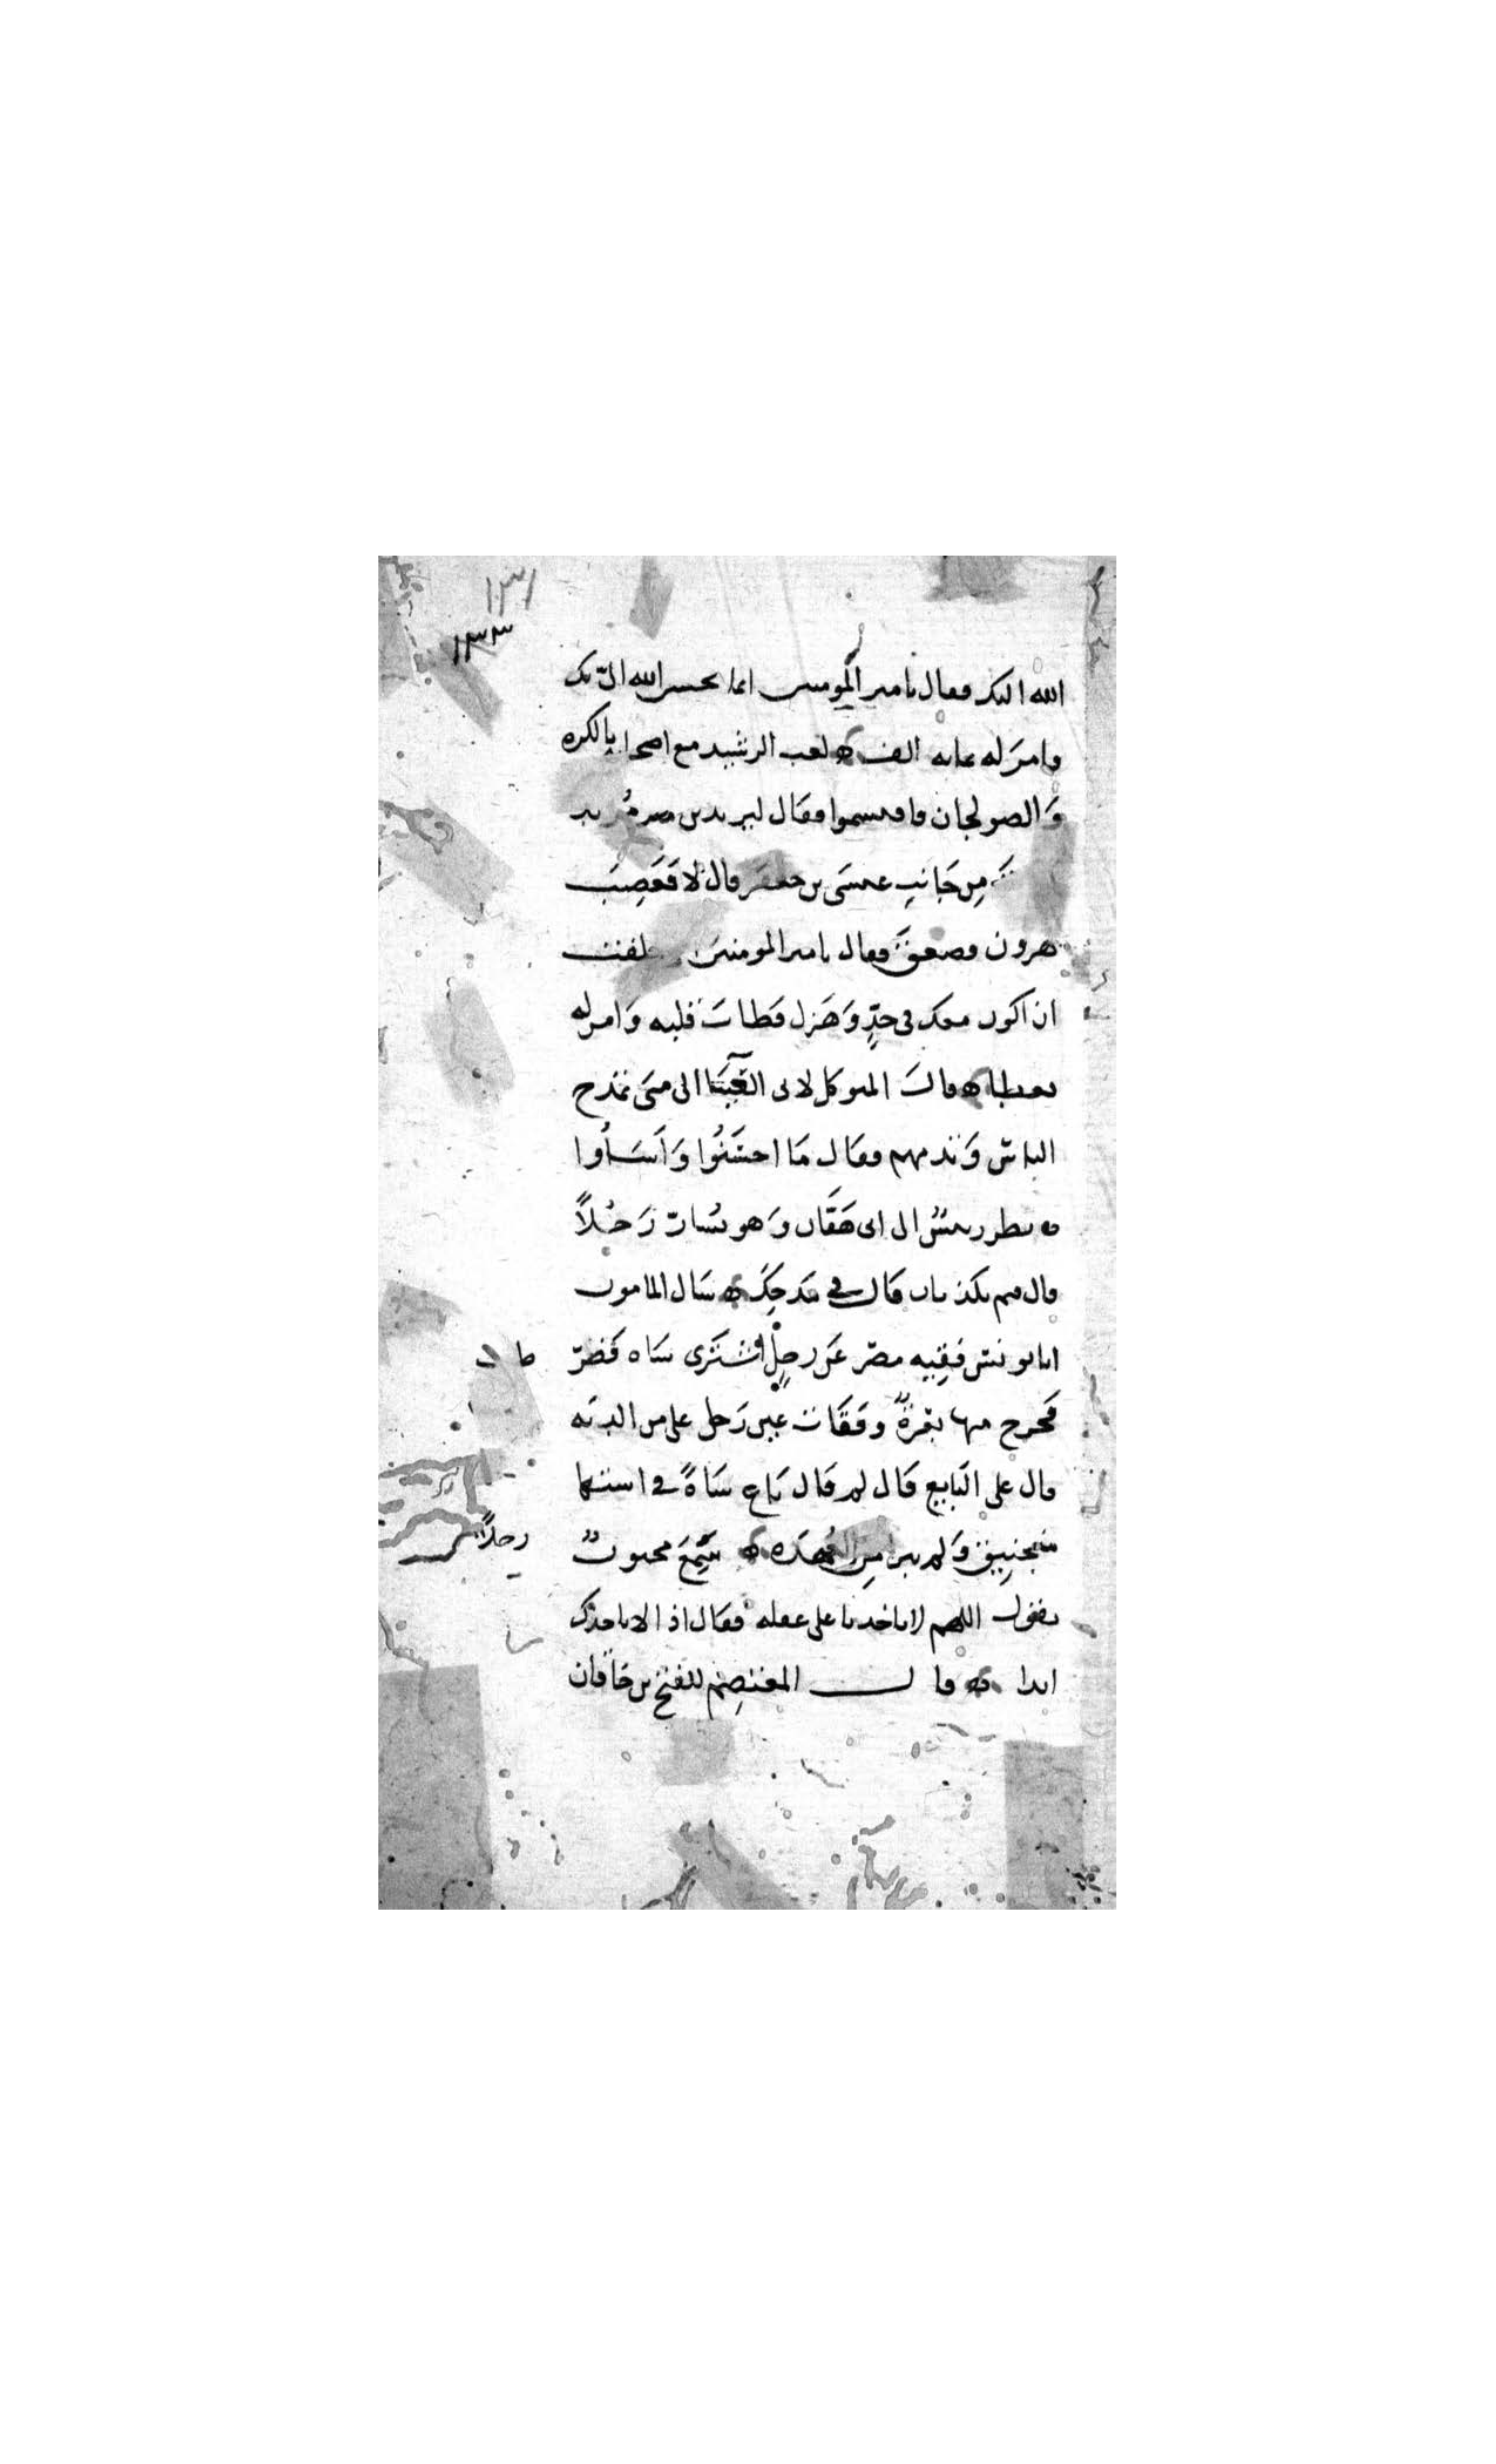 ١٣١
١٣٣
الله اليك فقال يامير المومنين انما يحسن الله اليّ بك
وامرَ له بمايه الف ه لعب الرشيد مع اصحابه بالكره
وَالصولجان فاقتسموا فقال ليزيد بن مزيد
مِن جَانبِ عيسَى بن جعفر قال لا فغَضِبَ
هرون وصعق فقال يا مير المومنينَ حلفت
ان اكون معك في جدٍّ وَهَزل فطابَت قلبه وَامر له
بعطايا ه قالَ المتوكل لابى العَينَا الى متى تمدح
الناسَ وَتذمهم فقال مَا احسَنُوا وَاَسَاُوا
ه نظر رجلٌ الى ابى هَفّان وَهو يُسَارّ رَجُلاً
قال فيم تكذبان قالَ في مَدحِكَ ه سَال المامون
ابا يونسَ فقِيه مصرَ عَن رجلٍ اشتَرَى شاه فضرّطت
فخرج منها بعرةٌ وفقَات عين رَجل على من الديَه
قال على البَايِع قال لم قال بَاع شاةً في استها
منجنِيق وَلم يبرا مِن العُهدَه ه سَمِعَ مجنونٌ رجلاً
يقول اللهم لا تاخذنا على غفله فقال اذا لا ياخذك
ابدا ه قالـــ المعتصِم للفتح بن خاقان